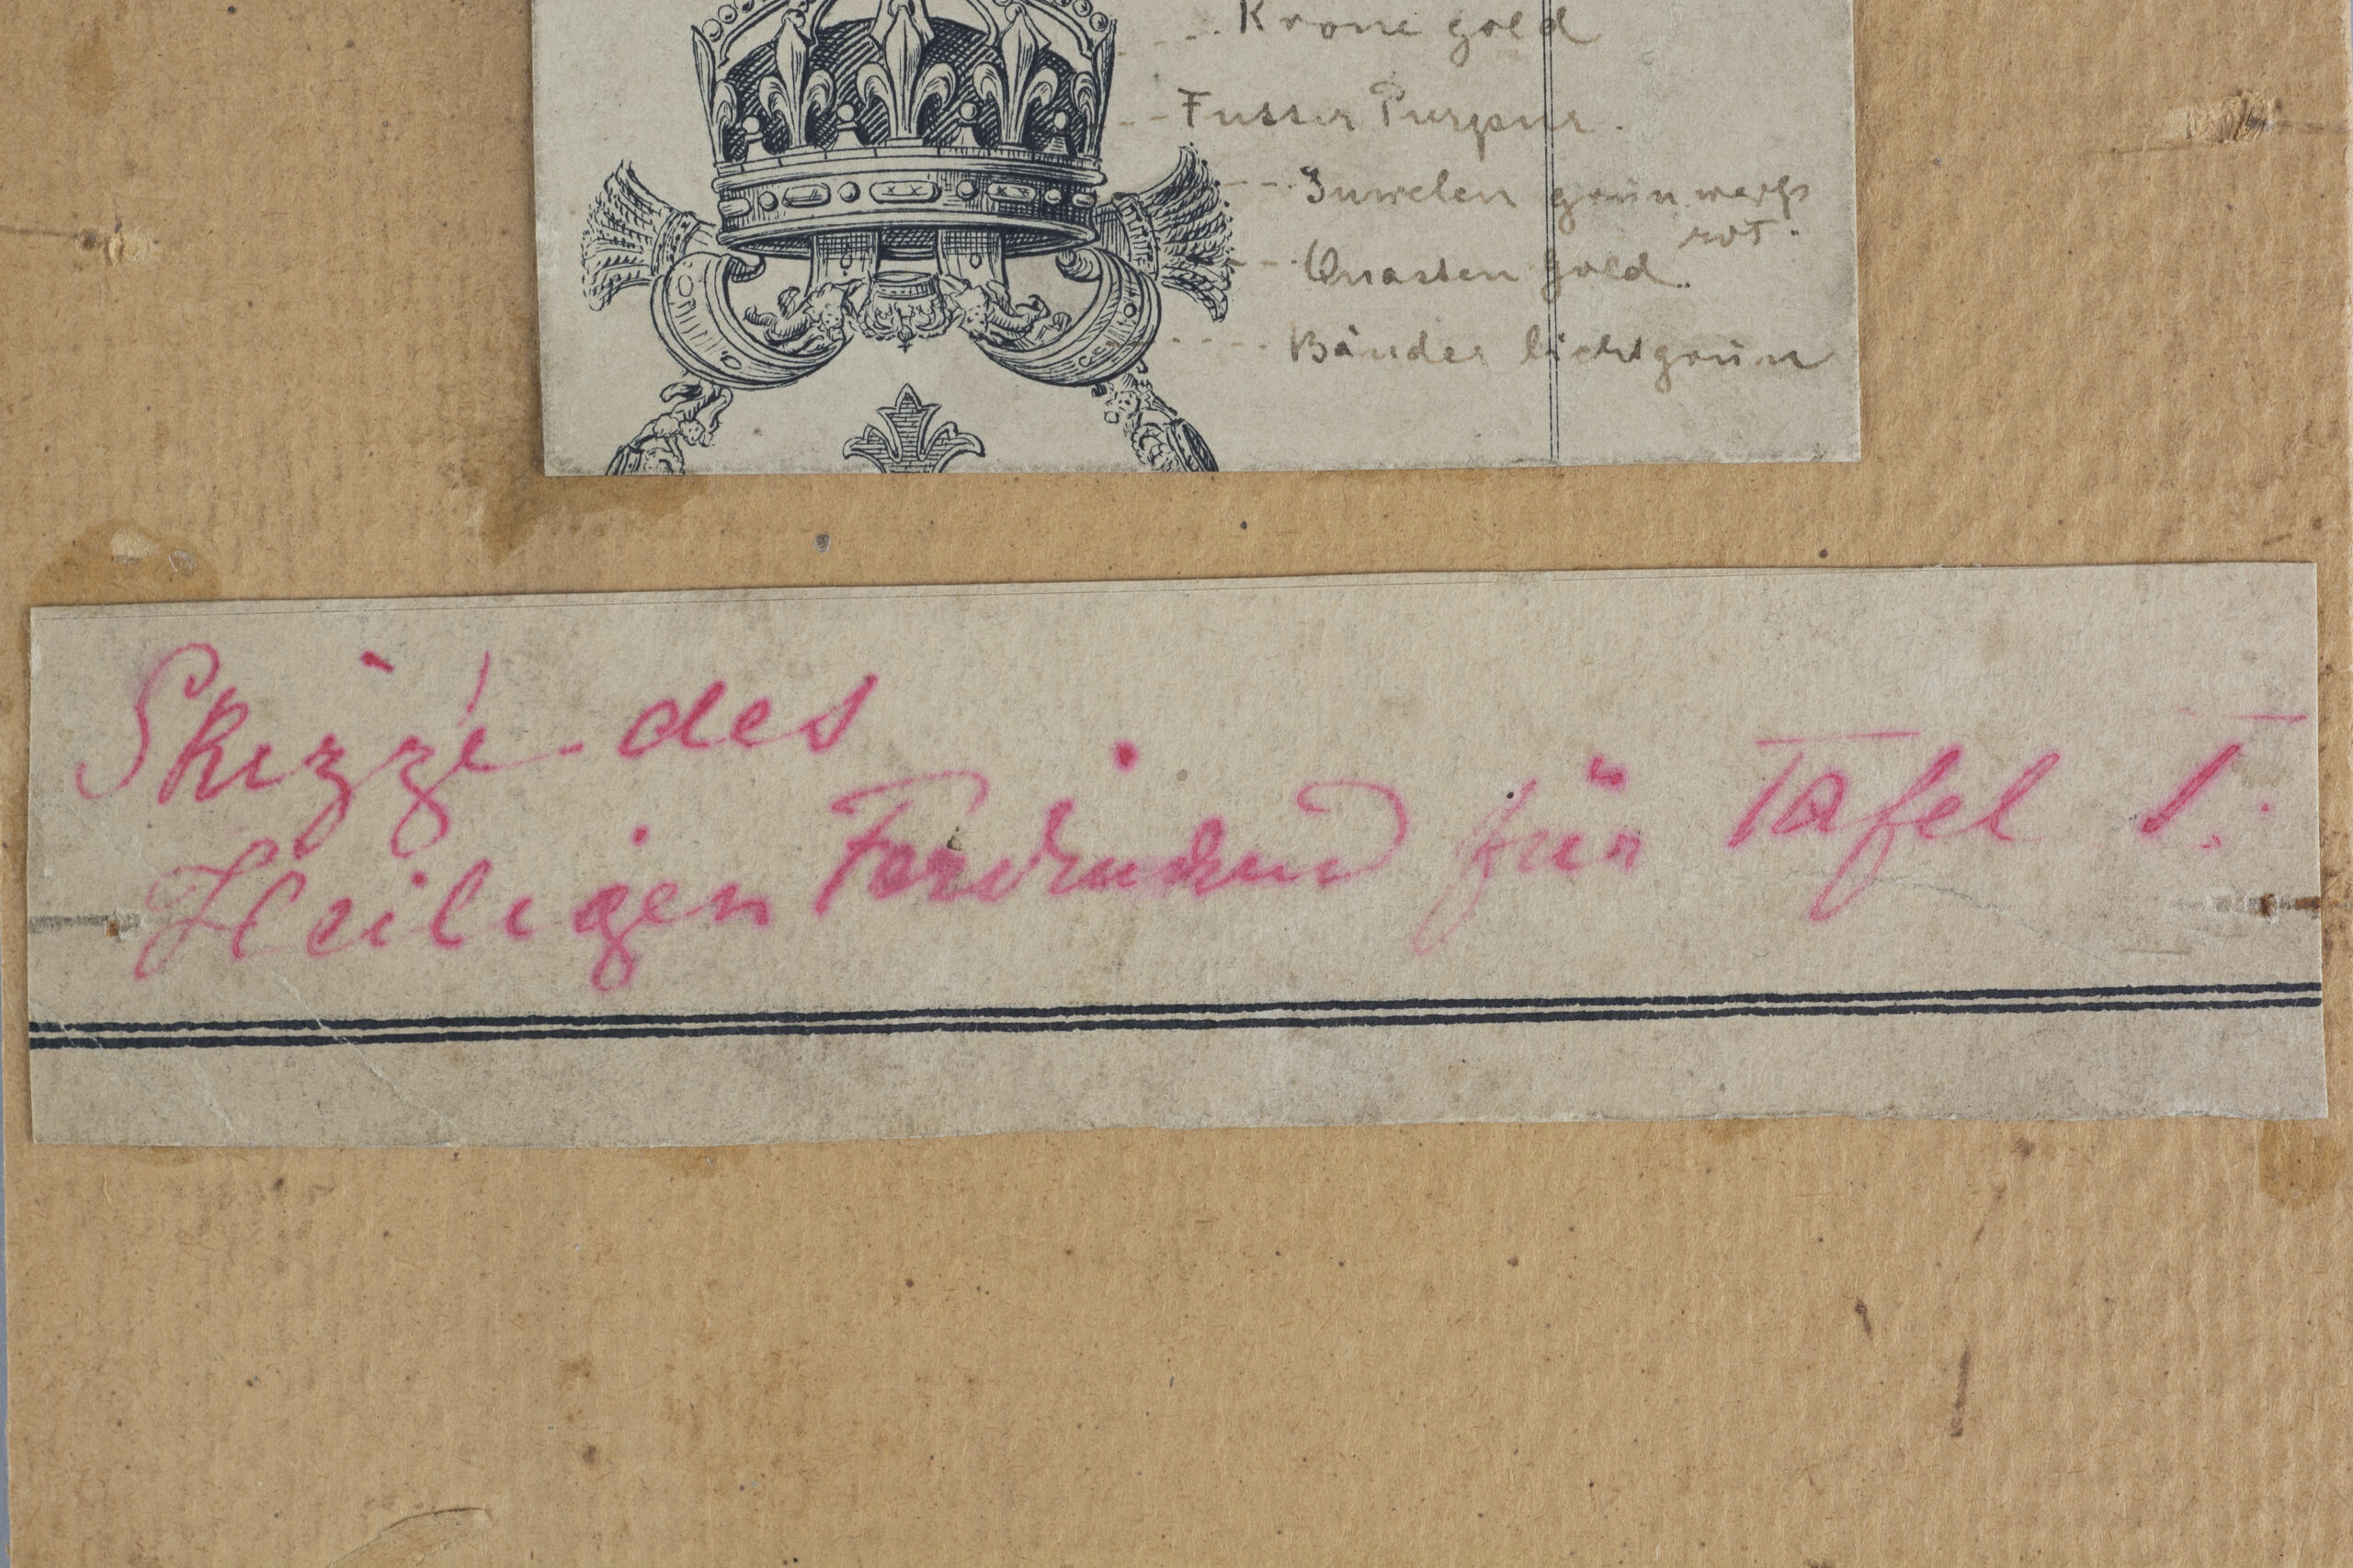 Krone gold
Futter Purpur.
Juwelen grün weiß
rot.
Quasten gold.
Bänder lichtgrün
Skizze des
Heiligen Ferdinand für Tafel I.